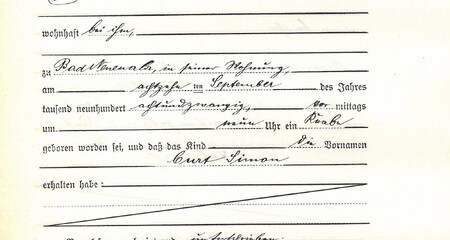 wohnhaft bei ihm,
zu Bad Nenenahr, in seiner Wohnung,
am achtzehn ten September des Jahres
tausend neunhundert achtundzwanzig, vor mittags
um neun Uhr ein Knabe
geboren worden sei, und daß das Kind die Vornamen
Curt Simon
erhalten habe:
unterschrieben: